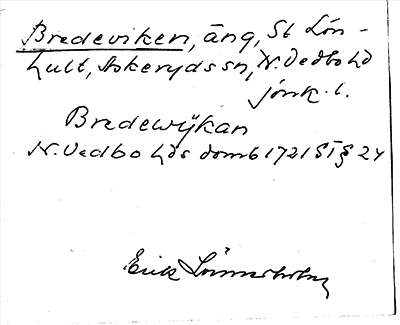 Bredeviken, äng, St Lön-
hult, Askeryds sn, N. Vedbo hd
jönk. l.
Bredewÿkan
N. Vedbo hds domb 1721 ST § 24
Erik